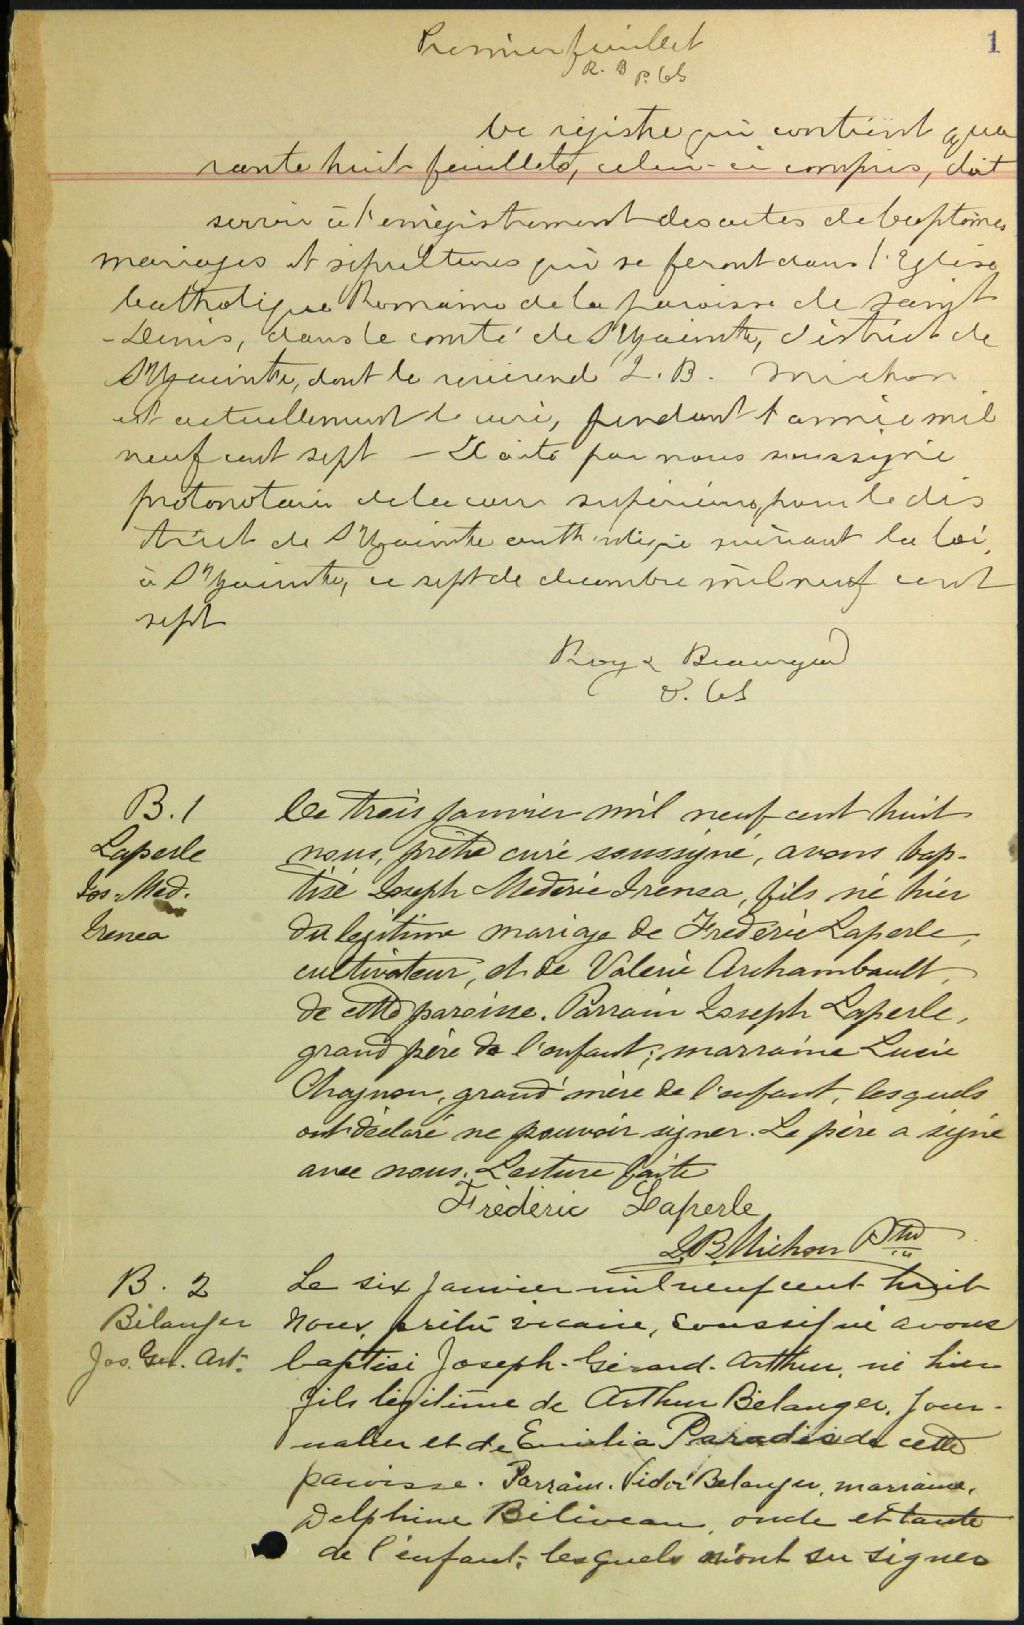 Premier feuillet
1
R. B p. CS
Ce registre qui contient qua
rante huit feuillets, celui-ci compris, doit
servir à l'enregistrement des actes de baptêmes
mariages et sépultures qui se feront dans l'Eglise
Catholique Romaine de la paroisse de saint
-Denis, dans le comté de St Hyacinthe, district de
St Hyacinthe, dont le révérend L. B. Michon
est actuellement le curé, pendant l'année mil
neuf cent sept - Il a été par nous soussigné
protonotaire de la cour supérieure, pour le dis
trict de St Hyacinthe authentiqué suivant la loi,
à St Hyacinthe, ce sept de décembre mil neuf cent
sept
Roy & Beauregard
P. CS
B. 1
Laperle
Jos. Med.
Irenea
Ce trois janvier mil neuf cent huit
nous, prêtre curé soussigné, avons bap-
tisé Joseph Mederic Irenea, fils né hier
du légitime mariage de Frederic Laperle,
cultivateur, et de Valerie Archambault,
de cette paroisse. Parrain Joseph Laperle,
grand père de l'enfant; marraine Lucie
Chagnon, grand'mère de l'enfant, lesquels
ont déclaré ne pouvoir signer. Le père a signé
avec nous. Lecture faite
Frédéric Laperle
L. B. Michon Ptre
B. 2
Bélanger
Jos. Ger. Art.
Le six Janvier mil neuf cent huit
nous, prêtre vicaire, soussigné avons
baptisé Joseph-Gérard-Arthur, né hier
fils légitime de Arthur Bélanger, Jour-
nalier et de Emilia Paradis de cette
paroisse. Parrain. Victor Belanger, marraine,
Delphine Béliveau, oncle et tante
de l'enfant; lesquels n'ont su signer